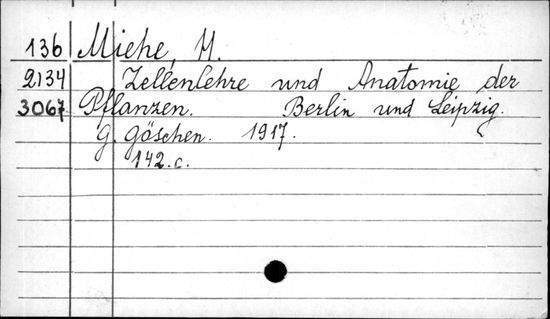 136 Miehe, H.
2134 Zellenlehre und Anatomie der
3067 Pflanzen. Berlin und Leipzig.
G. Göschen. 1917.
142.c.